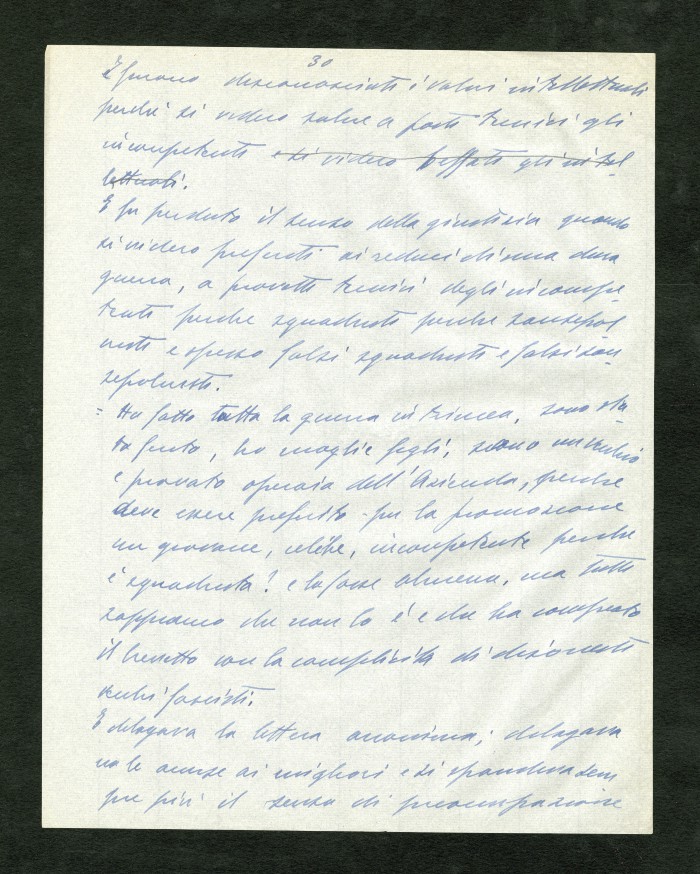 30
E furono disconosciuti i valori intellettuali
perchè si videro salire a posti tecnici gli
incompetenti e si videro beffati gli intel
lettuali.
E fu perduto il senso della giustizia quando
si videro preferiti ai reduci di una dura
guerra, a provetti tecnici degli incompe-
tenti perche squadristi perche sansepol
cristi e spesso falsi squadristi e falsi san-
sepolcristi.
= Ho fatto tutta la guerra in trincea, sono sta
to ferito, ho moglie figli, sono un vecchio
e provato operaio dell'Azienda, perche
deve essere preferito per la promozione
un giovane, celibe, incompetente perche
è squadrista? e lo fosse almeno, ma tutti
sappiamo che non lo è e che ha comprato
il brevetto con la complicità di disonesti
vecchi fascisti.
E dilagava la lettera anonima; dilagava
no le accuse ai migliori e si spandeva sem
pre più il senso di preoccupazione